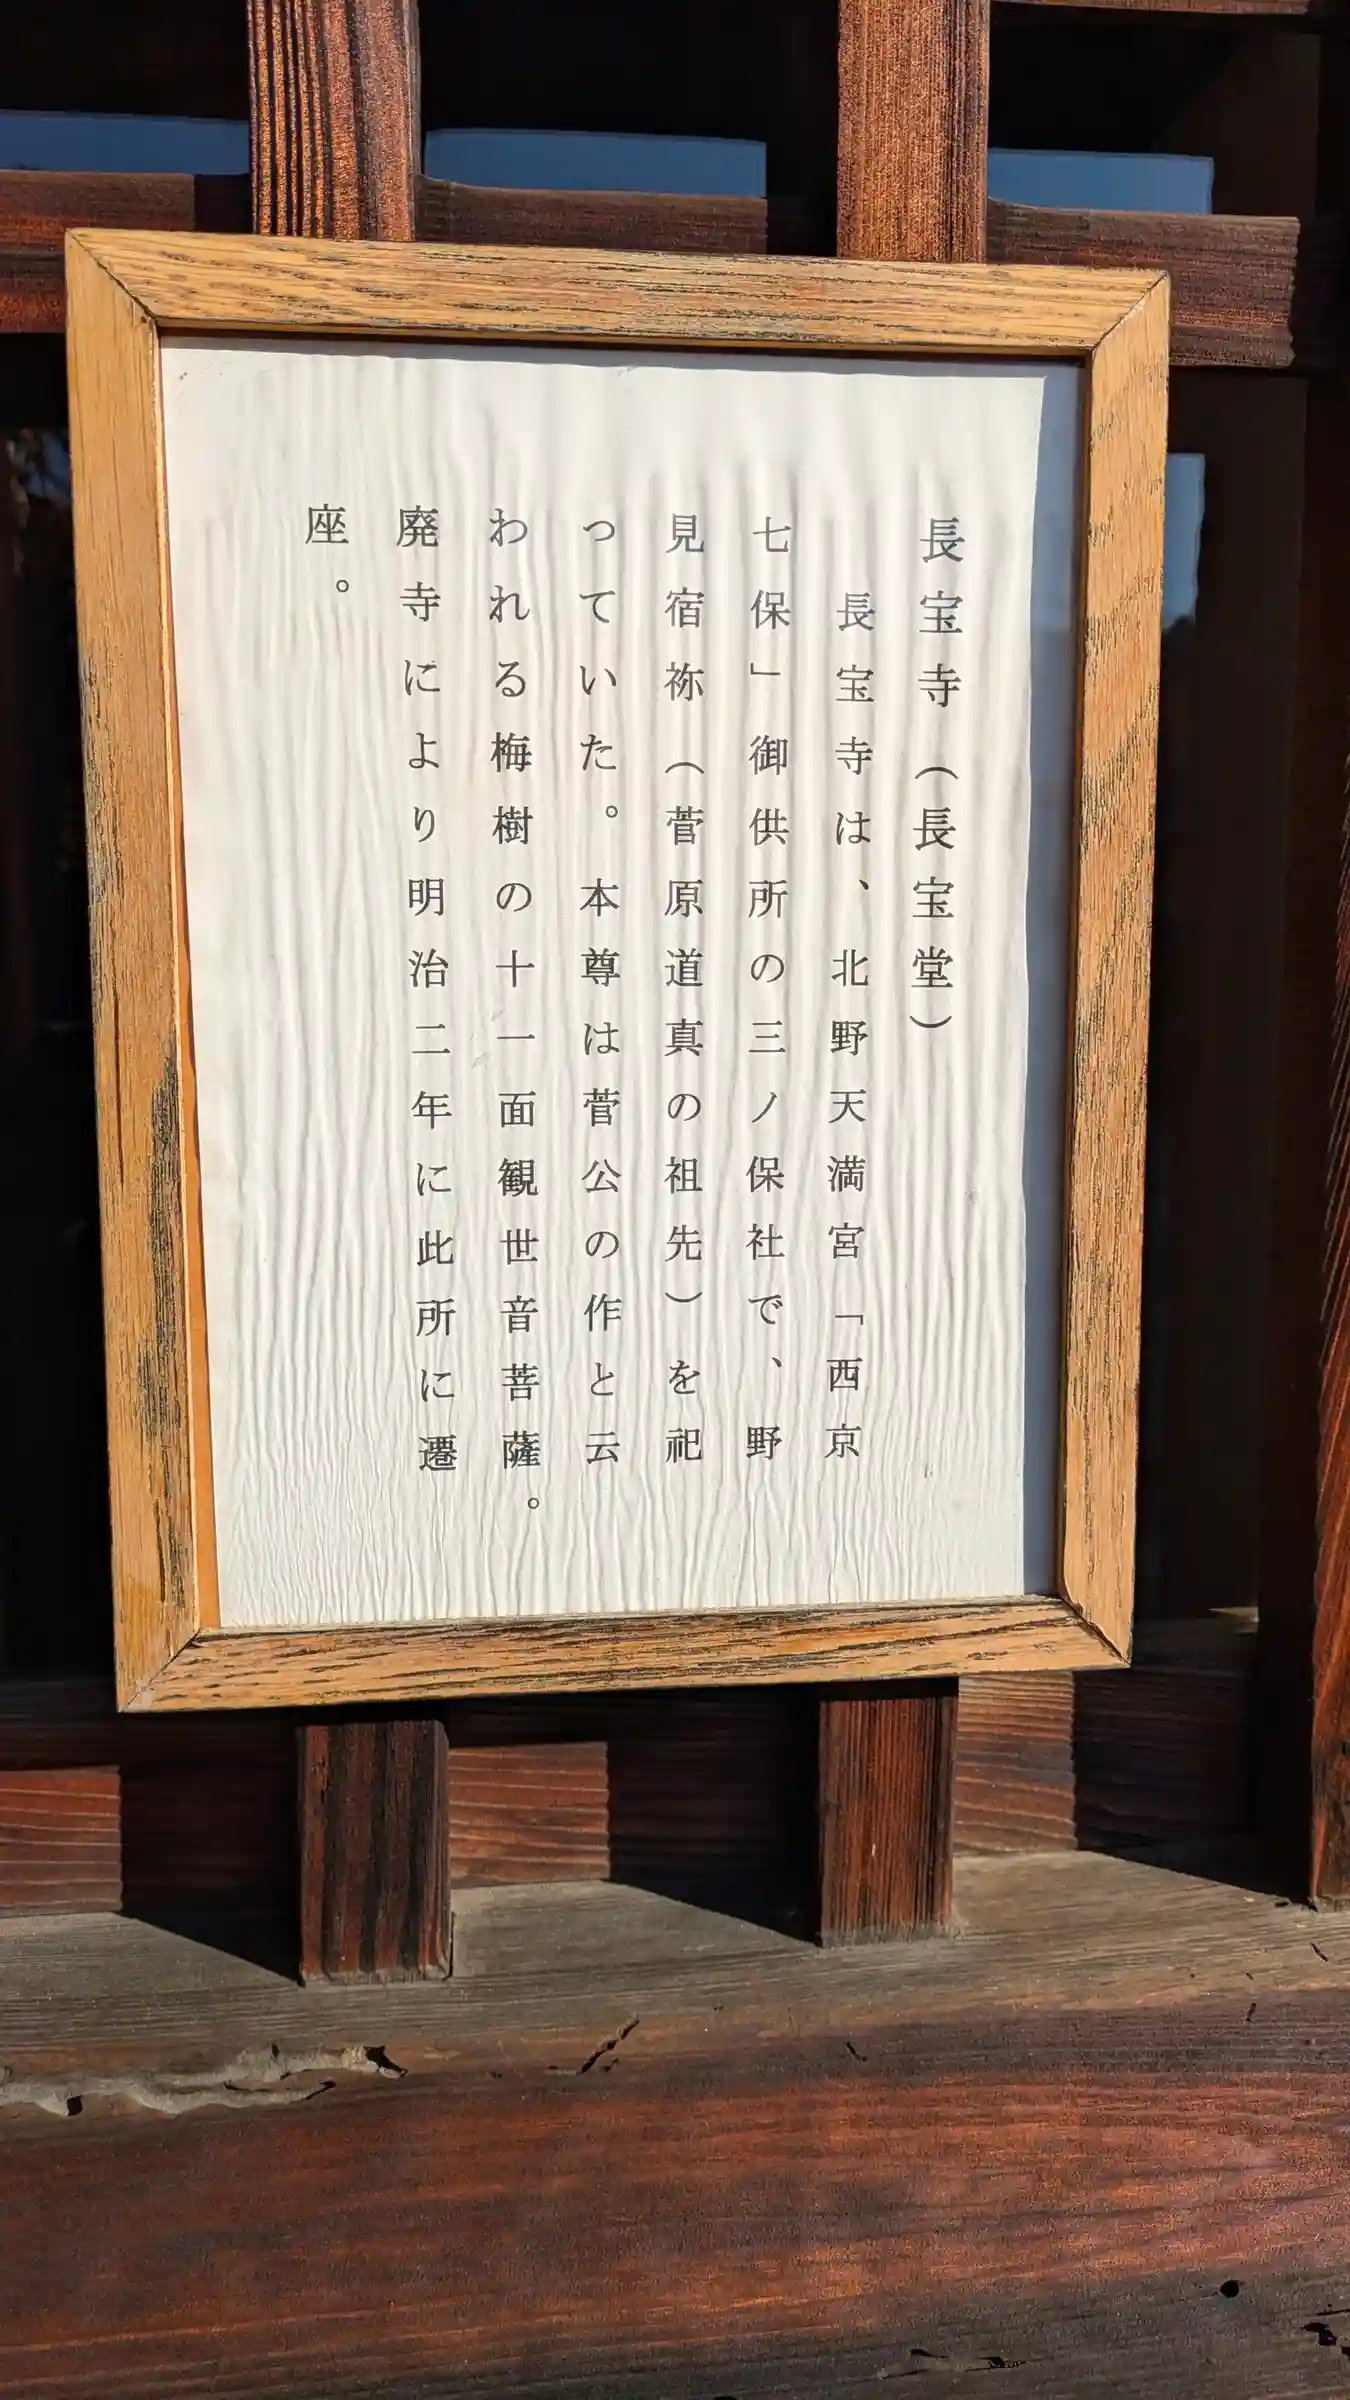 長宝寺（長宝堂）
長宝寺は、北野天満宮「西京
七保」御供所の三ノ保社で、野
見宿祢（菅原道真の祖先）を祀
っていた。本尊は菅公の作と云
われる梅樹の十一面観世音菩薩。
廃寺により明治二年に此所に遷
座。